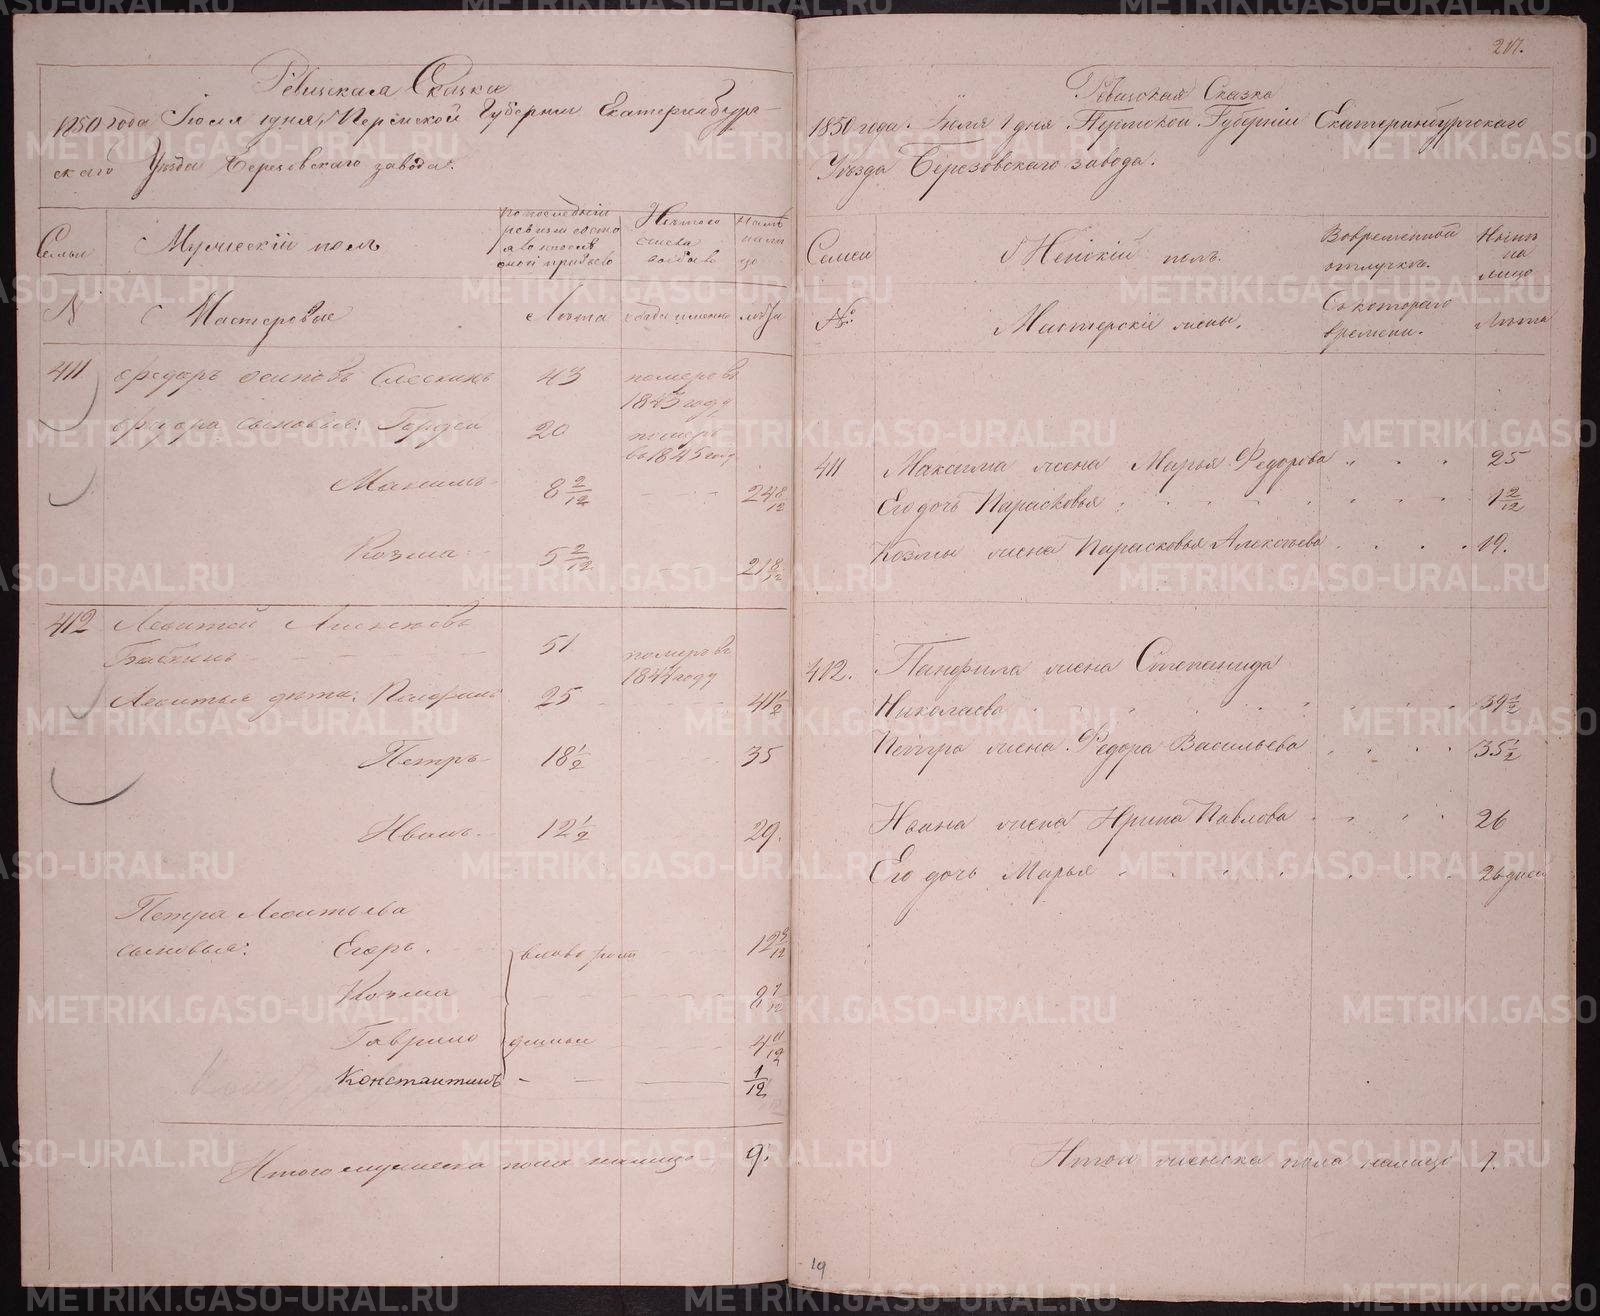 Ревизская Сказка
1850 года Июля 1 дня, Пермской Губернии Екатеринбург-
скаго Уезда Березовскаго завода.
Семьи
Мужескій полъ
По последней
ревизіи состо
яло и после
оной прибыло
Изъ того
числа
выбыло
Ныне
на ли
цо
N
Мастеровые
Лета
когда именно
лета
411 Федоръ Осиповъ 43 померъ въ
1843 году
Федора сыновья: Гордей 20 померъ
въ 1845 году
Максимъ 8 2/12 24 8/12
Козма 5 2/12 21 8/12
412 Леонтей
Бабкинъ 51 померъ въ
1844 году
Леонтья дети: Панфилъ 25 41 1/2
Петръ 18 1/2 35
Иванъ 12 1/2 29.
Петра Леонтьева
сыновья: Егоръ. вновь рож 12 9/12
Козма 8 7/12
Гаврило денныи 4 11/12
Константинъ 1/12
Итого мужеска пола налицо 9.
217.
Ревизская Сказка
1850 года. Июля 1 дня Пермской Губерніи Екатеринбургскаго
Уезда Березовскаго завода.
Семьи
Женскій полъ.
Во временной
отлучке.
Ныне
на
лицо
№
Мастерскіе жены.
Съ котораго
времени.
Лета
411 Максима жена Марья Федорова 25
Его дочь Парасковья 1 2/12
Козмы жена Парасковья Алексеева 19.
412. Панфила жена Степанида
Николаева 39 1/2
Петра жена Федора Васильева 35 1/2
Ивана жена Ирина Павлова 26
Его дочь Марья 26 дней
Итого женска пола налицо 7.
19
METRIKI.GASO-URAL.RU